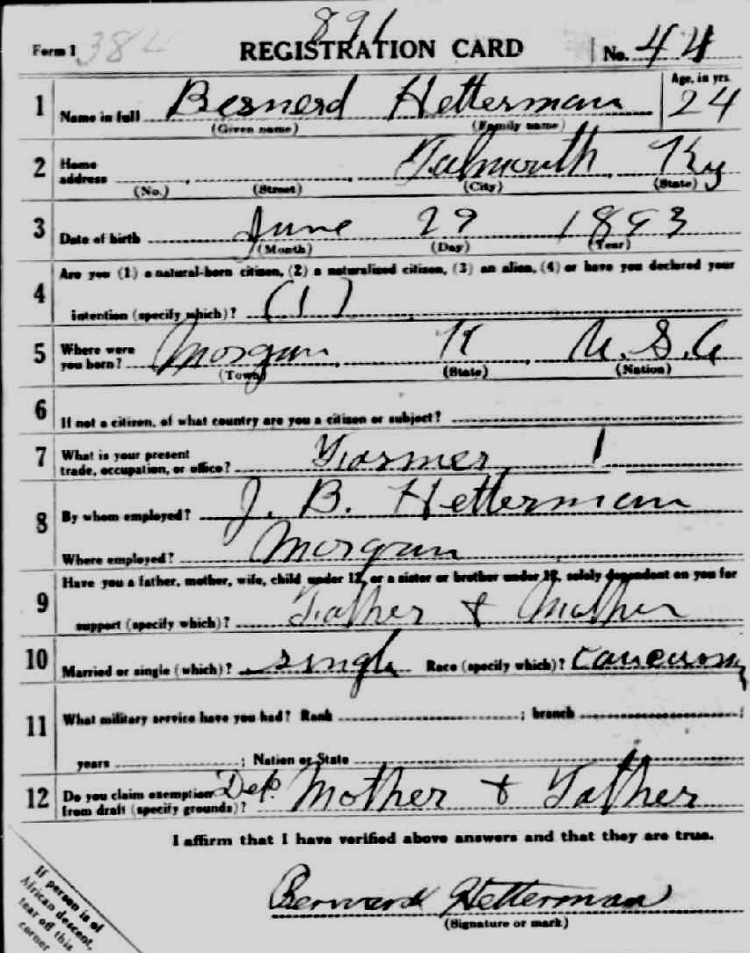 891
Form 1 384 REGISTRATION CARD No. 44
1 Name in full Bernerd Hetterman Age, in yrs. 24
(Given name) (Family name)
2 Home address Falmouth, Ky
(No.) (Street) (City) (State)
3 Date of birth June 29 1893
(Month) (Day) (Year)
4 Are you (1) a natural-born citizen, (2) a naturalized citizen, (3) an alien, (4) or have you declared your
intention (specify which)? (1)
5 Where were you born? Morgan, K, U.S.A
(Town) (State) (Nation)
6 If not a citizen, of what country are you a citizen or subject?
7 What is your present trade, occupation, or office? Farmer 1
8 By whom employed? J. B. Hetterman
Where employed? Morgan
9 Have you a father, mother, wife, child under 12, or a sister or brother under 12, solely dependent on you for
support (specify which)? Father + Mother
10 Married or single (which)? single Race (specify which)?
11 What military service have you had? Rank ; branch ;
years ; Nation or State
12 Do you claim exemption from draft (specify grounds)? Dep. Mother + Father
I affirm that I have verified above answers and that they are true.
Bernard Hetterman
(Signature or mark)
If person is of
African descent,
tear off this
corner